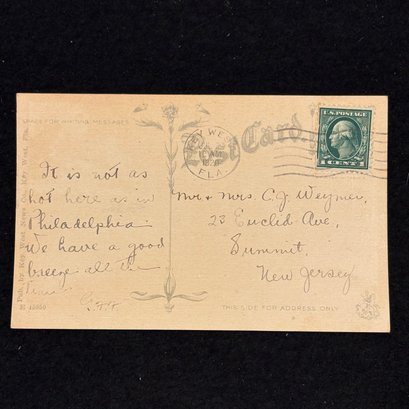 SPACE FOR WRITING MESSAGES
Post Card.
KEY WEST
FLA.
U.S. POSTAGE
1 CENT 1
It is not as
hot here as in
Philadelphia.
We have a good
breeze all the
time
Mr & Mrs C. J. Weymer,
23 Euclid Ave,
Summit,
New Jersey
THIS SIDE FOR ADDRESS ONLY
Pub. by Key West News Co. Key West, Fla.